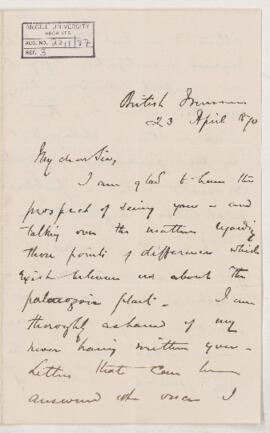 McGILL UNIVERSITY
ARCHIVES
ACC. NO.
REF. 3
British Museum
23 April 1870
My dear Sir,
I am glad to have the
prospect of seeing you and
talking over the matters regarding
those points of difference which
exist between us about the
palaeozoic plants. I am
thoroughly ashamed of my
never having written you.
Letters that can be
answered at once I